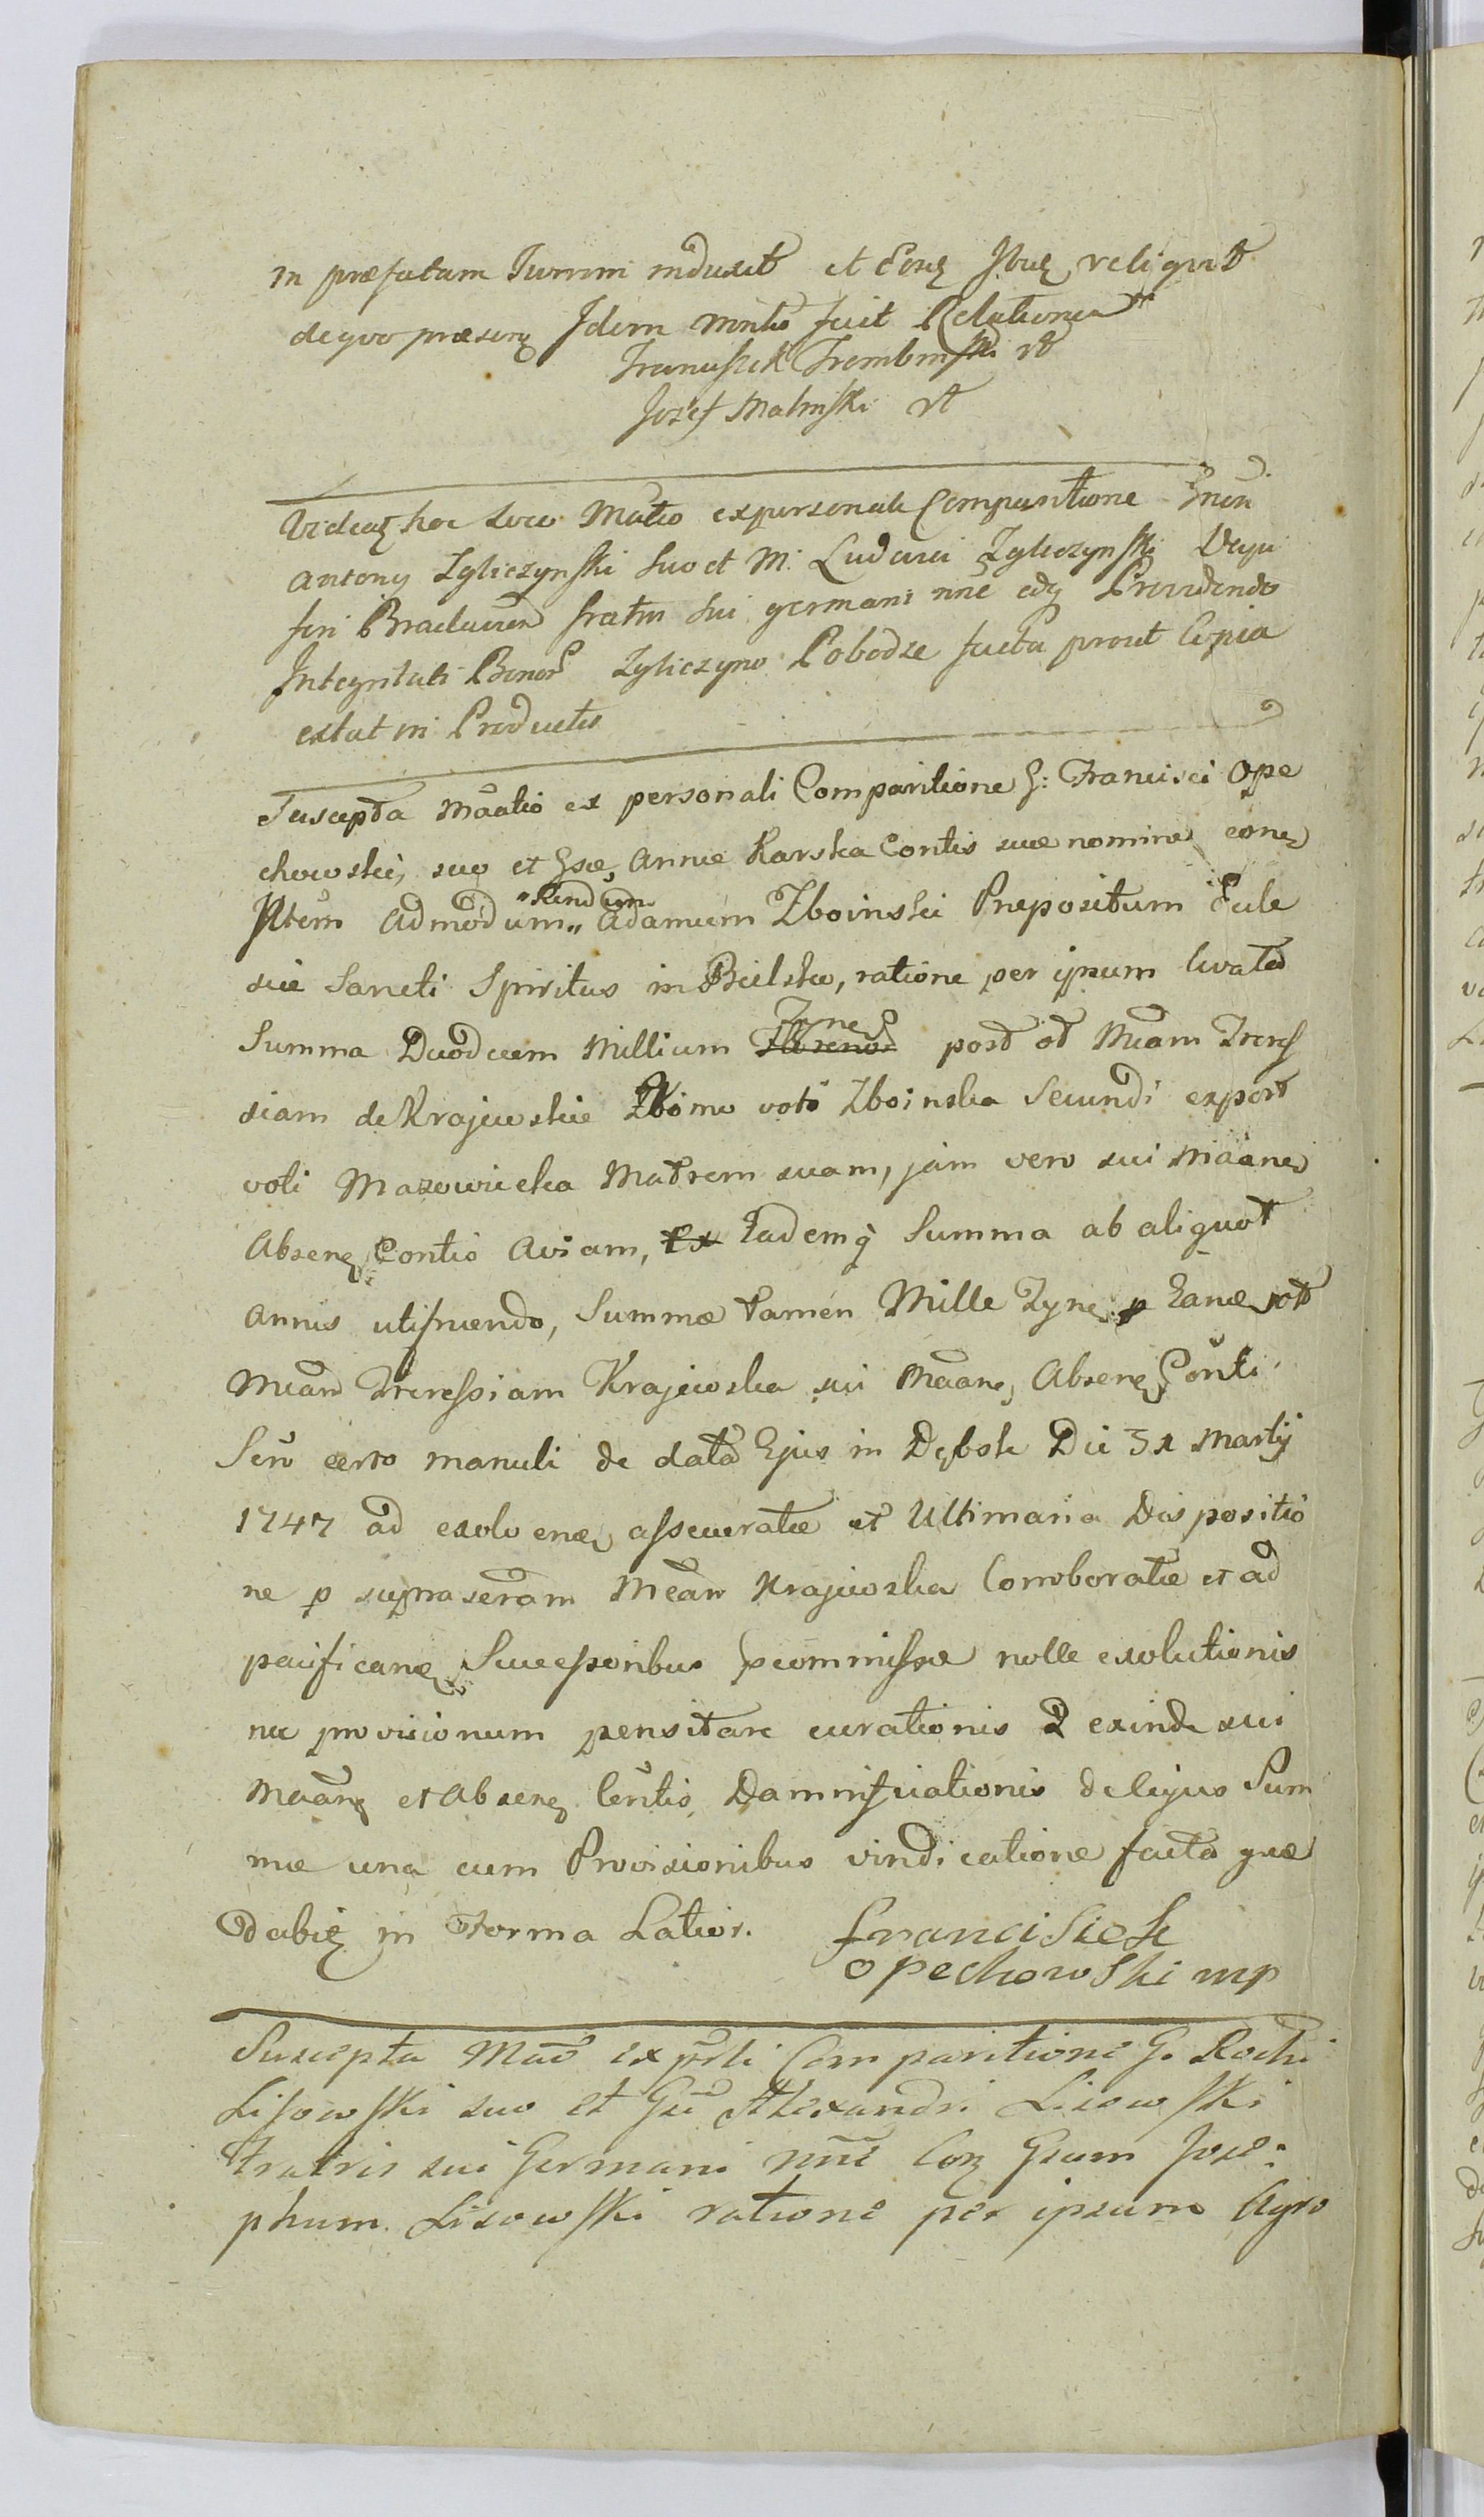 in præfatam Summ induxit et Eong Jbug religvit
deqvo præseng Idem Mntio fecit Relationem
Franciszek Trembinski rt
Jozef Malinski rt
Videatz hoc loco Matio expersonali Comparitione Gnen
Antony Zgliczynski suo et M: Ludovici Zgliczynski Vexi
feri Braclavien fratris sui germani nne edz Providendo
Integritati Bonor Zgliczyno Pobodze facta prout Copia
extat in Productis
Suscepta Maatio ex personali Comparitione G: Francisci Ope
chowski, suo et Gsæ, Annæ Karska Contis suæ nomine, cone
Pltem Admodum „Rendum„ Adamum Zboinski Prepositum Eccle
siæ Sancti Spiritus in Bielsko, ratione per ipsum levata
Summa Duodecem Millium Fbrenor Tyne post ot Mcam Teress
siam de Krajewskie Zbimo voto Zboinska Secundi expost
voti Mazowiecka Matrem suam, jam vero sui Maane
Absenz Contis Aviam, Ex Eademq Summa ab aliquot
annis utifruendo, Summæ tamen Mille Tyne p Eanæ, ot
Mcam Teressiam Krajewska sui Maane, Absenz Conti
Scro certo manuli de data Ejus in Dębsk Die 31 Martij
1747 ad exolvenz asseveratæ et Ultimaria Dispositio
ne p suprascram Mcam Krajewska Corroboratæ et ad
pacificanz Successoribus pcommissæ nolle exolutionis
nec provisionum pensitare curationis & exinde sui
Maanz et Absenz Centis Damnificationis de Cujus Sum
mæ una cum Provisionibus vindicatione facta quæ
Dabiz in Forma Latior. franciszek
opechowski mp
Suscepta Mao ex prli Comparitione G. Rochi
Lisowski suo et Gsi Alexandri Lisowski
Fratris sui Germani nne Coz Gsum Jose:
phum Lisowski ratione per ipsum Agro